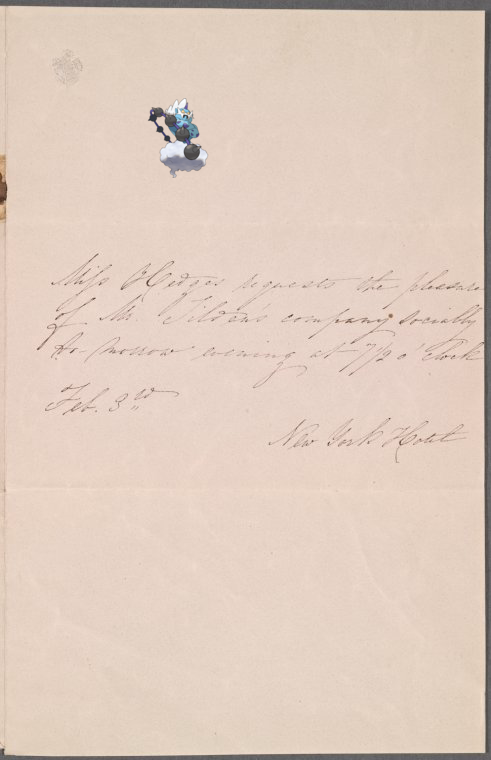 Miss Hedges requests the pleasure
of Mr. Tildens company socially
to morrow evening at 7 1/2 o'Clock
Feb. 3rd
New York Hotel